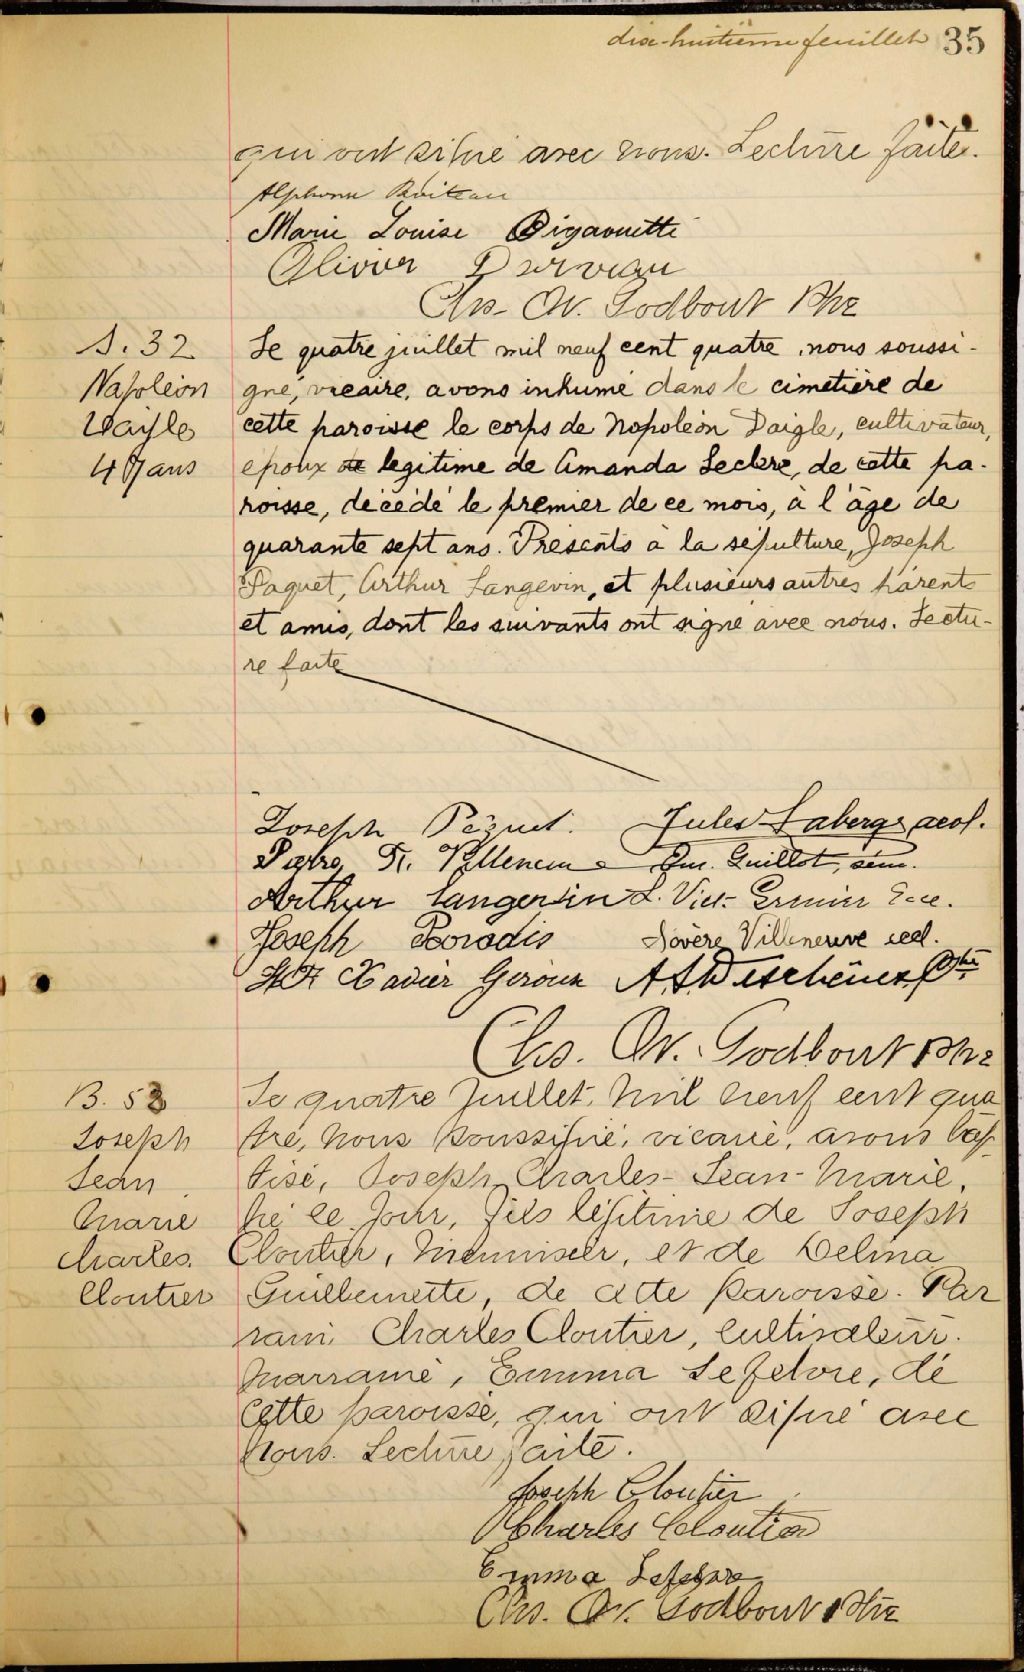 dix-huitième feuillet 35
qui ont signé avec nous. Lecture faite.
Alphonse Boiteau
Marie Louise Bigaouette
Olivier Derveau
Chs. Ov. Godbout Ptre
S. 32
Napoléon
Daigle
47 ans
Le quatre juillet mil neuf cent quatre, nous soussi-
gné, vicaire, avons inhumé dans le cimetière de
cette paroisse le corps de Napoléon Daigle, cultivateur,
époux de legitime de Amanda Leclerc, de cette pa-
roisse, décédé le premier de ce mois, à l'âge de
quarante sept ans. Présents à la sépulture, Joseph
Paquet, Arthur Langevin, et plusieurs autres parents
et amis, dont les suivants ont signé avec nous. Lectu-
re faite
Joseph Péquet. Jules Laberge, acol.
Pierre Fr. Villeneuve Guillot, sém.
Arthur Langevin L. Vict. Grenier Ecc.
Joseph Paradis Sovère Villeneuve eccl.
Xavier Giroux A. Deschênes, Ptre
Chs. Ov. Godbout Ptre
B. 53
Joseph
Jean
Marie
Charles.
Cloutier
Le quatre Juillet, mil neuf cent qua
tre, nous soussigné, vicaire, avons bap-
tisé, Joseph Charles-Jean-Marie,
né ce jour, fils légitime de Joseph
Cloutier, menuisier, et de Delina
Guillemette, de cette paroisse. Par
rain Charles Cloutier, cultivateur.
Marraine, Emma Lefebvre, de
cette paroisse, qui ont signé avec
nous. Lecture faite.
Joseph Cloutier
Charles Cloutier
Emma Lefebvre
Chs. Ov. Godbout Ptre